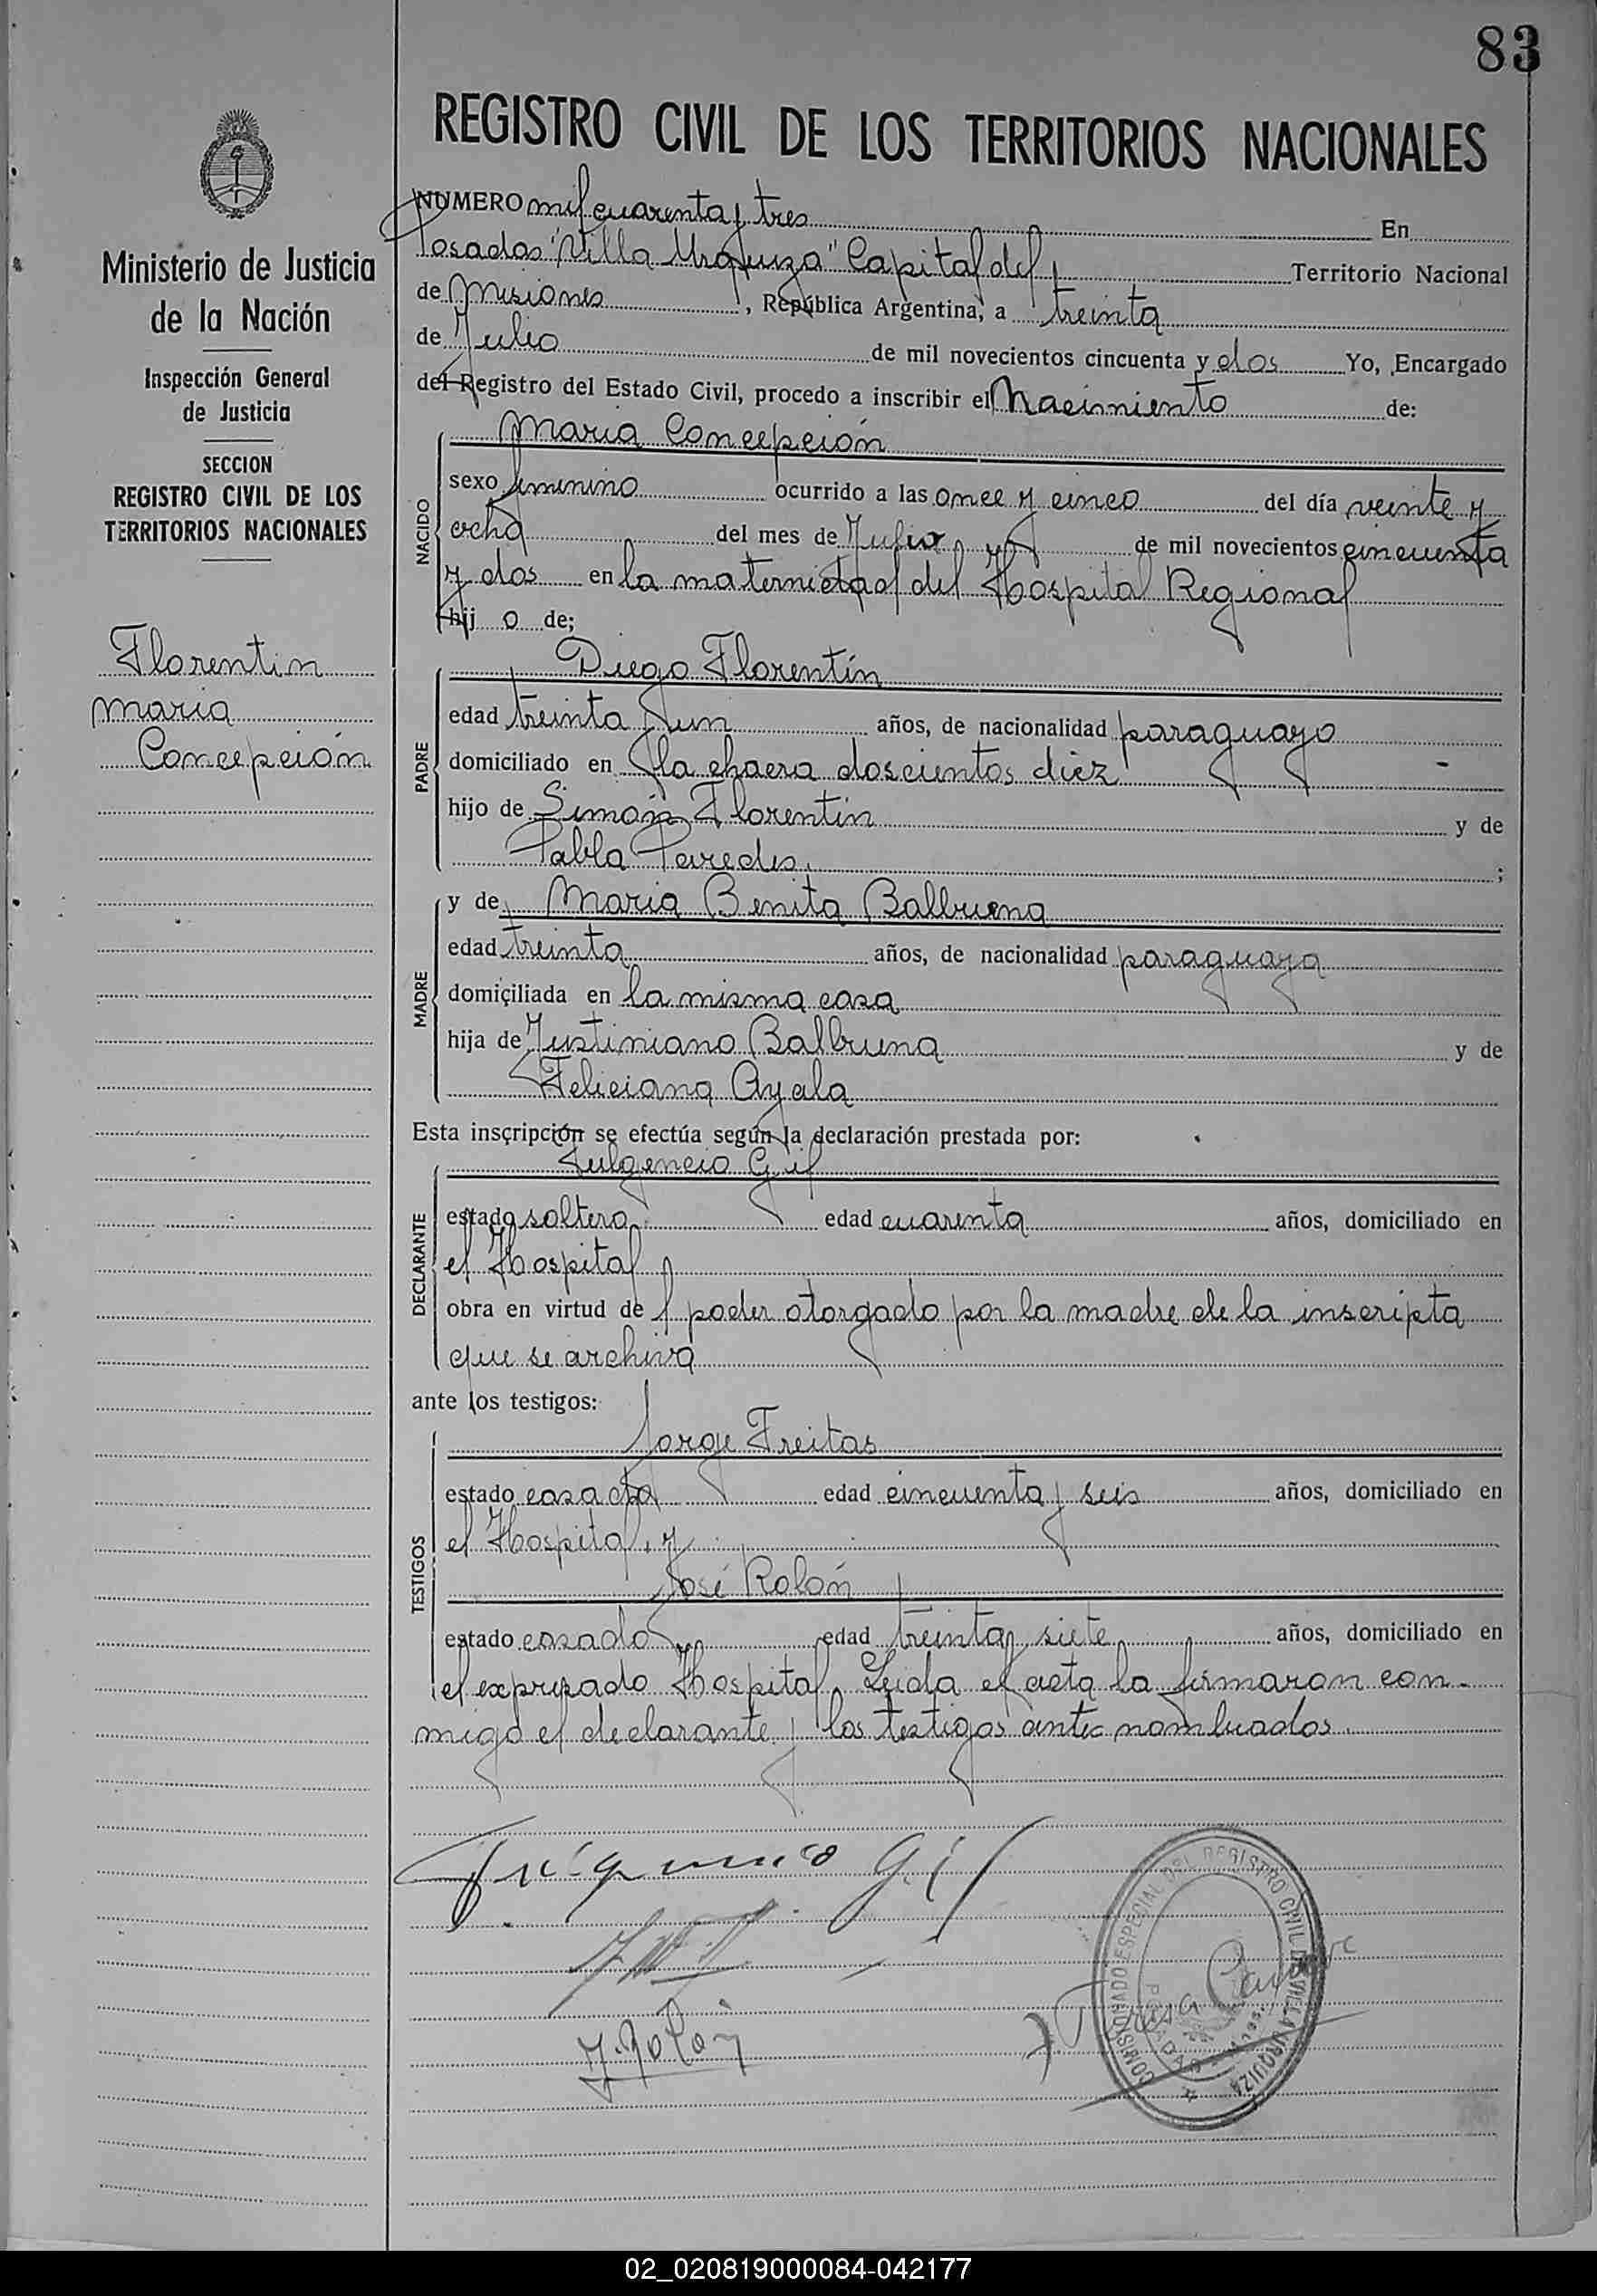 83
REGISTRO CIVIL DE LOS TERRITORIOS NACIONALES
Ministerio de Justicia
de la Nación
Inspección General
de Justicia
SECCION
REGISTRO CIVIL DE LOS
TERRITORIOS NACIONALES
Florentin
Maria
Concepción
NUMERO mil cuarenta y tres En
Posadas "Villa Urquiza" Capital del Territorio Nacional
de Misiones, República Argentina, a treinta
de Julio de mil novecientos cincuenta y dos Yo, Encargado
del Registro del Estado Civil, procedo a inscribir el Nacimiento de:
NACIDO
Maria Concepción
sexo femenino ocurrido a las once y cinco del día veinte y
ocho del mes de Julio de mil novecientos cincuenta
y dos en la maternidad del Hospital Regional
hij o de;
PADRE
Diego Florentín
edad treinta y un años, de nacionalidad paraguayo
domiciliado en la chacra doscientos diez
hijo de Simón Florentín y de
Pabla Paredes ;
MADRE
y de Maria Benita Balbuena
edad treinta años, de nacionalidad paraguaya
domiciliada en la misma casa
hija de Justiniano Balbuena y de
Feliciana Ayala
Esta inscripción se efectúa según la declaración prestada por:
DECLARANTE
Fulgencio Gil
estado soltero edad cuarenta años, domiciliado en
el Hospital
obra en virtud de poder otorgado por la madre de la inscripta
que se archiva
ante los testigos:
TESTIGOS
Jorge Freitas
estado casado edad cincuenta y seis años, domiciliado en
el Hospital, y
José Rolón
estado casado edad treinta y siete años, domiciliado en
el expresado Hospital. Leida el acta la firmaron con-
migo el declarante y los testigos antes nombrados.
Gil
J. Rolón
COMISIONADO ESPECIAL DEL REGISTRO CIVIL DE VILLA URQUIZA
POSADAS
02_020819000084-042177